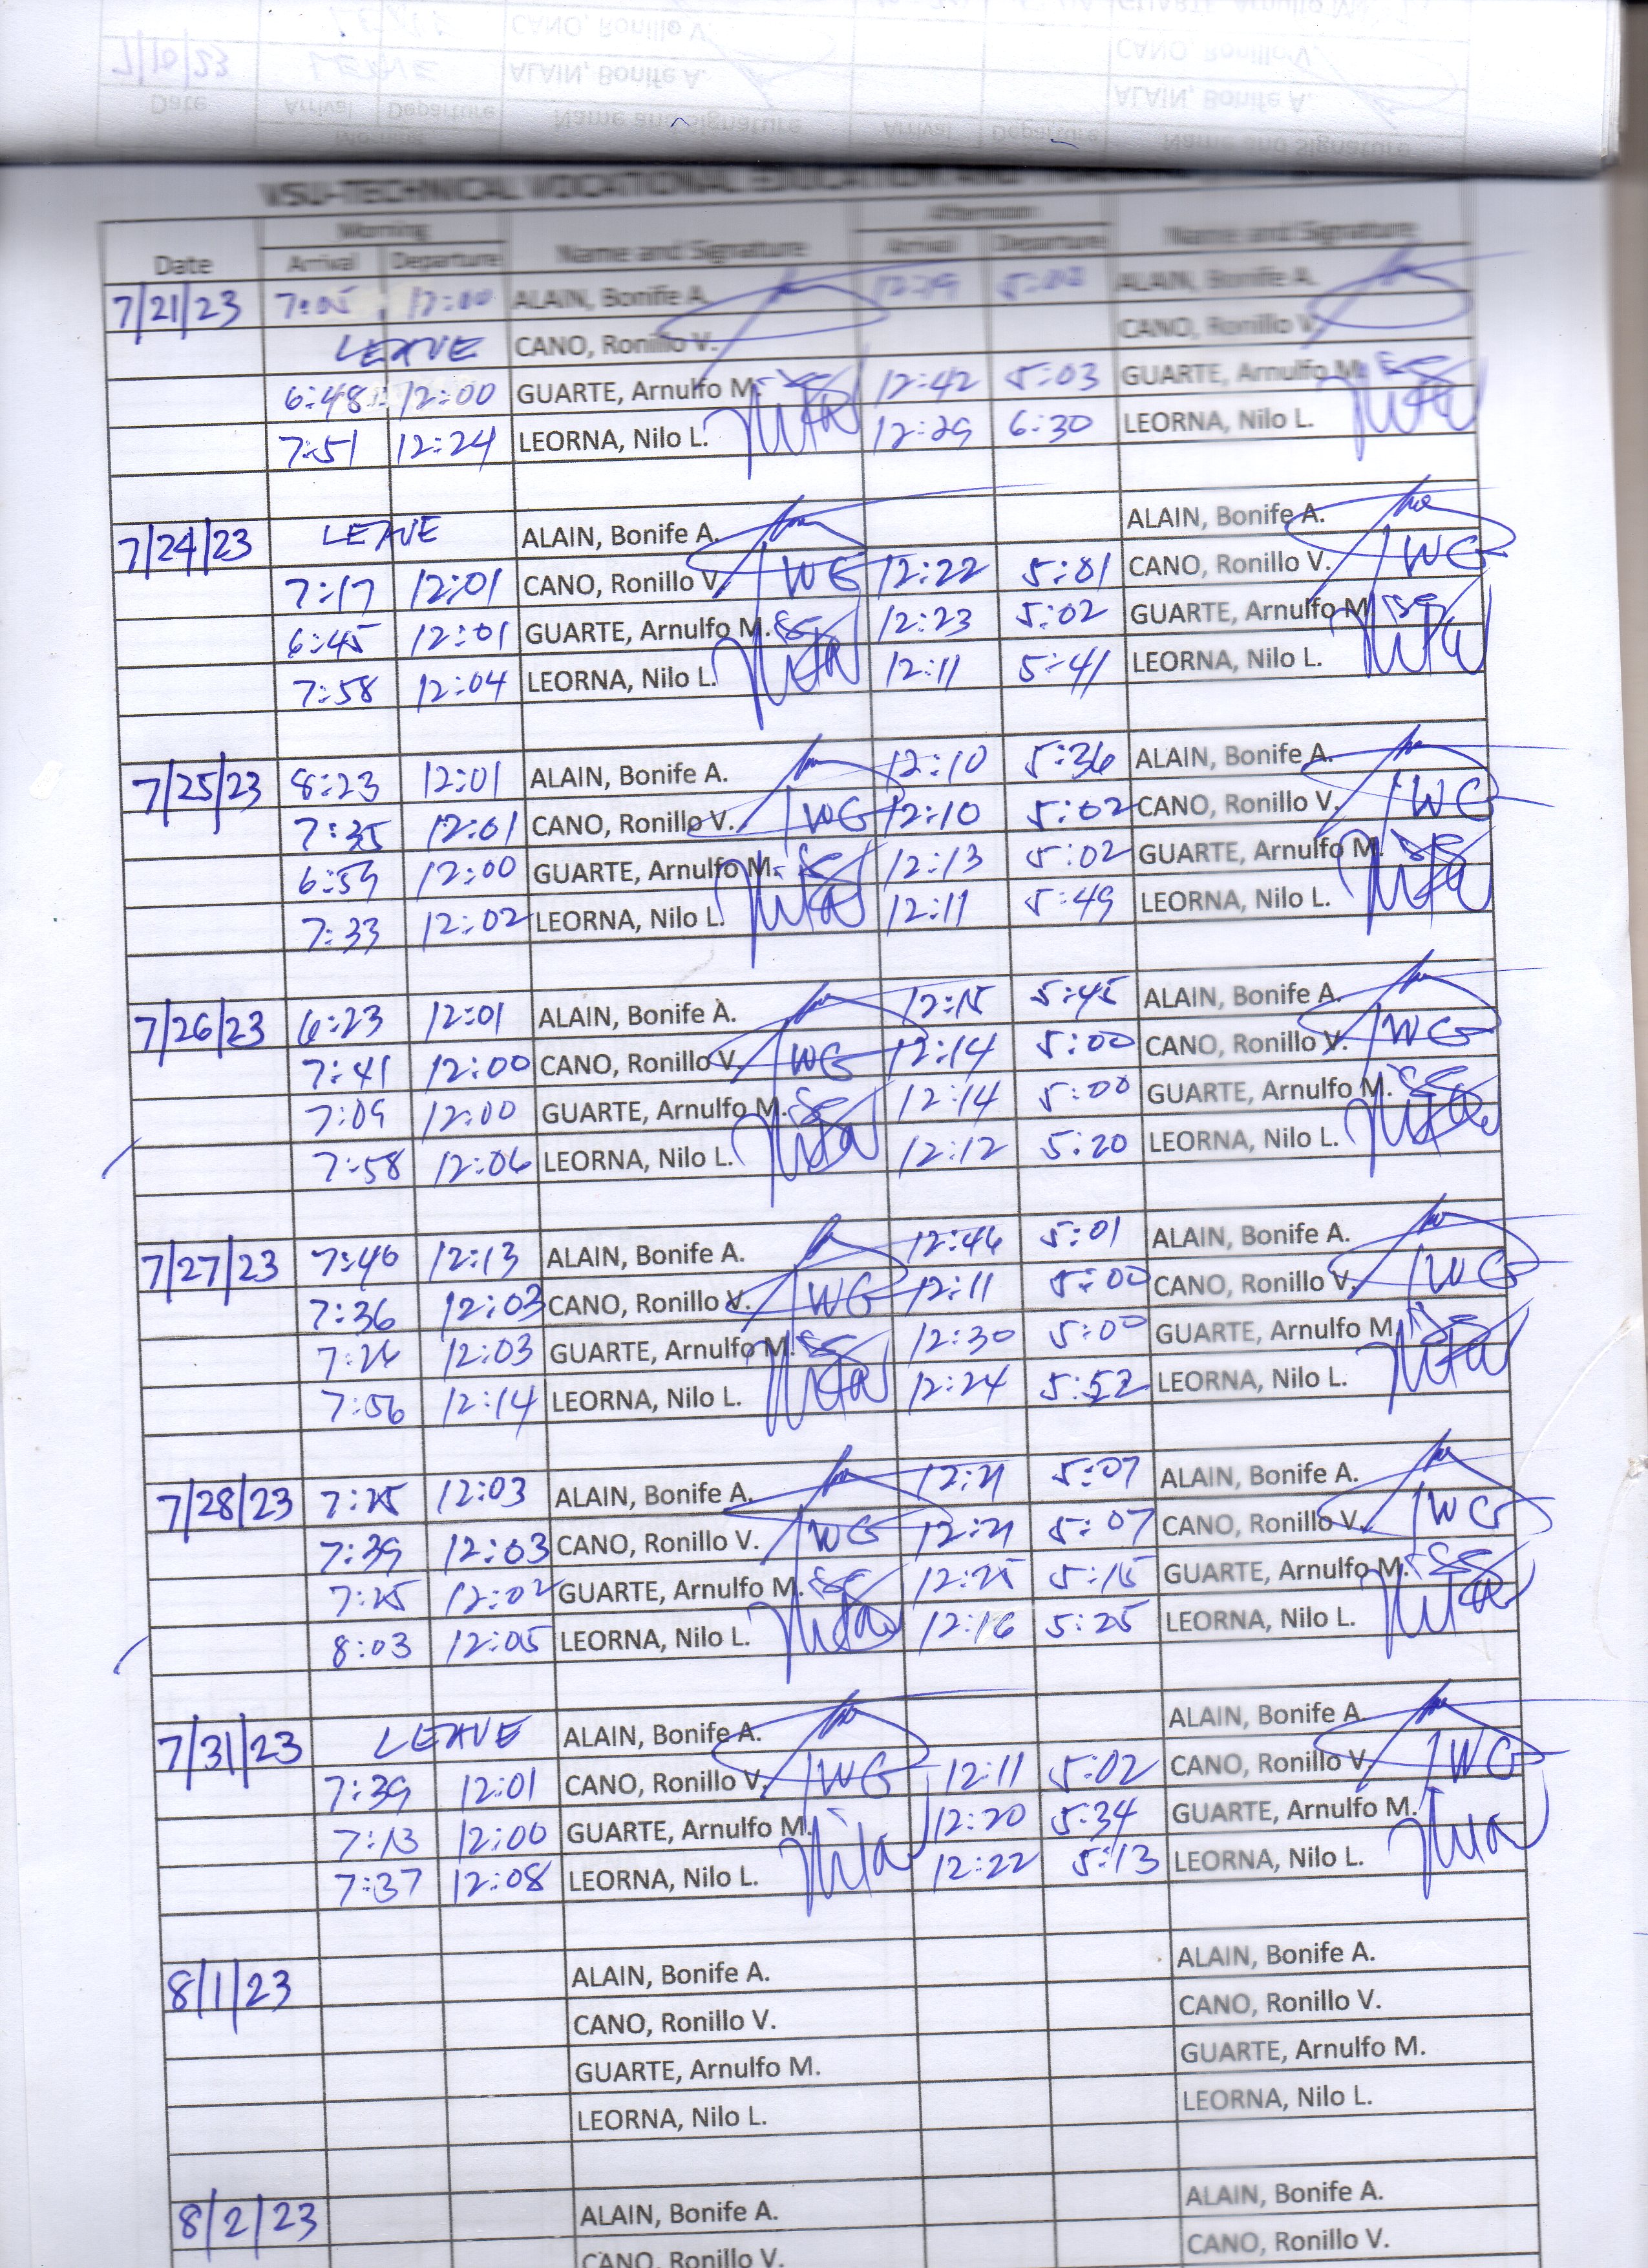 7/10/23 LEAVE ALAIN, Bonife A. ALAIN, Bonife A.
Date Arrival Departure Name and Signature Arrival Departure Name and Signature
VSU-TECHNICAL VOCATIONAL EDUCATION AND
Morning Afternoon
Date Arrival Departure Name and Signature Arrival Departure Name and Signature
7/21/23 7:05 12:00 ALAIN, Bonife A. 5:00 ALAIN, Bonife A.
LEAVE CANO, Ronillo V. CANO, Ronillo V.
6:48 12:00 GUARTE, Arnulfo M. 12:42 5:03 GUARTE, Arnulfo M.
7:51 12:24 LEORNA, Nilo L. 12:29 6:30 LEORNA, Nilo L.
7/24/23 LEAVE ALAIN, Bonife A. ALAIN, Bonife A.
7:17 12:01 CANO, Ronillo V. 12:22 5:01 CANO, Ronillo V.
6:45 12:01 GUARTE, Arnulfo M. 12:23 5:02 GUARTE, Arnulfo M.
7:58 12:04 LEORNA, Nilo L. 12:11 5:41 LEORNA, Nilo L.
7/25/23 8:23 12:01 ALAIN, Bonife A. 12:10 5:36 ALAIN, Bonife A.
7:35 12:01 CANO, Ronillo V. 12:10 5:02 CANO, Ronillo V.
6:59 12:00 GUARTE, Arnulfo M. 12:13 5:02 GUARTE, Arnulfo M.
7:33 12:02 LEORNA, Nilo L. 12:11 5:49 LEORNA, Nilo L.
7/26/23 6:23 12:01 ALAIN, Bonife A. 12:15 5:45 ALAIN, Bonife A.
7:41 12:00 CANO, Ronillo V. 12:14 5:00 CANO, Ronillo V.
7:09 12:00 GUARTE, Arnulfo M. 12:14 5:00 GUARTE, Arnulfo M.
7:58 12:06 LEORNA, Nilo L. 12:12 5:20 LEORNA, Nilo L.
7/27/23 7:40 12:13 ALAIN, Bonife A. 12:46 5:01 ALAIN, Bonife A.
7:36 12:03 CANO, Ronillo V. 12:11 5:00 CANO, Ronillo V.
7:26 12:03 GUARTE, Arnulfo M. 12:30 5:00 GUARTE, Arnulfo M.
7:56 12:14 LEORNA, Nilo L. 12:24 5:52 LEORNA, Nilo L.
7/28/23 7:25 12:03 ALAIN, Bonife A. 12:21 5:07 ALAIN, Bonife A.
7:39 12:03 CANO, Ronillo V. 12:21 5:07 CANO, Ronillo V.
7:25 12:02 GUARTE, Arnulfo M. 12:25 5:15 GUARTE, Arnulfo M.
8:03 12:05 LEORNA, Nilo L. 12:16 5:25 LEORNA, Nilo L.
7/31/23 LEAVE ALAIN, Bonife A. ALAIN, Bonife A.
7:39 12:01 CANO, Ronillo V. 12:11 5:02 CANO, Ronillo V.
7:13 12:00 GUARTE, Arnulfo M. 12:20 5:34 GUARTE, Arnulfo M.
7:37 12:08 LEORNA, Nilo L. 12:22 5:13 LEORNA, Nilo L.
8/1/23 ALAIN, Bonife A. ALAIN, Bonife A.
CANO, Ronillo V. CANO, Ronillo V.
GUARTE, Arnulfo M. GUARTE, Arnulfo M.
LEORNA, Nilo L. LEORNA, Nilo L.
8/2/23 ALAIN, Bonife A. ALAIN, Bonife A.
CANO, Ronillo V. CANO, Ronillo V.